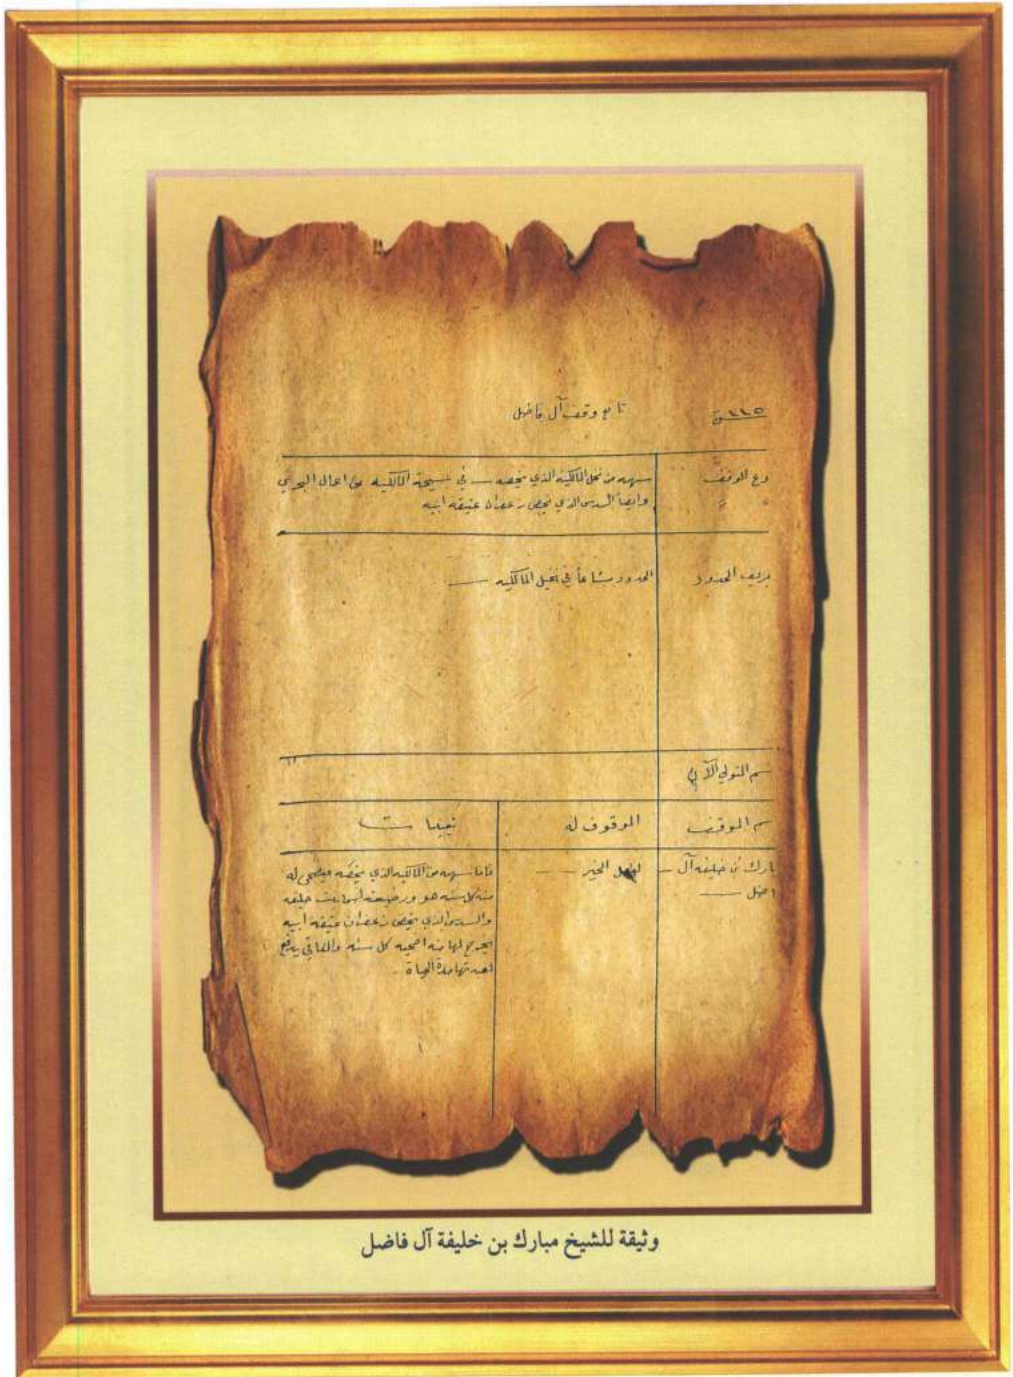 تابع وقف آل فاضل
وع الوقف سهمه من نخل المالكيه الذي يخصه في المالكيه من اعمال البحرين
وايضاً السدس الذي يخص زعفران عتيقة ابيه
ريف الحدود الحدود مشاعاً في نخيل المالكيه
سم المتولي الآن
سم الموقف الموقوف له تنبيهات
بارك بن خليفه آل الخير سهمه من المالكيه الذي يخصه فيضحى له
اضل منه كل سنه هو بنت خليفه
والسدس الذي يخص زعفران عتيقة ابيه
يخرج لها منه اضحيه كل سنه والباقي يدفع
مدة الحياة
وثيقة للشيخ مبارك بن خليفة آل فاضل